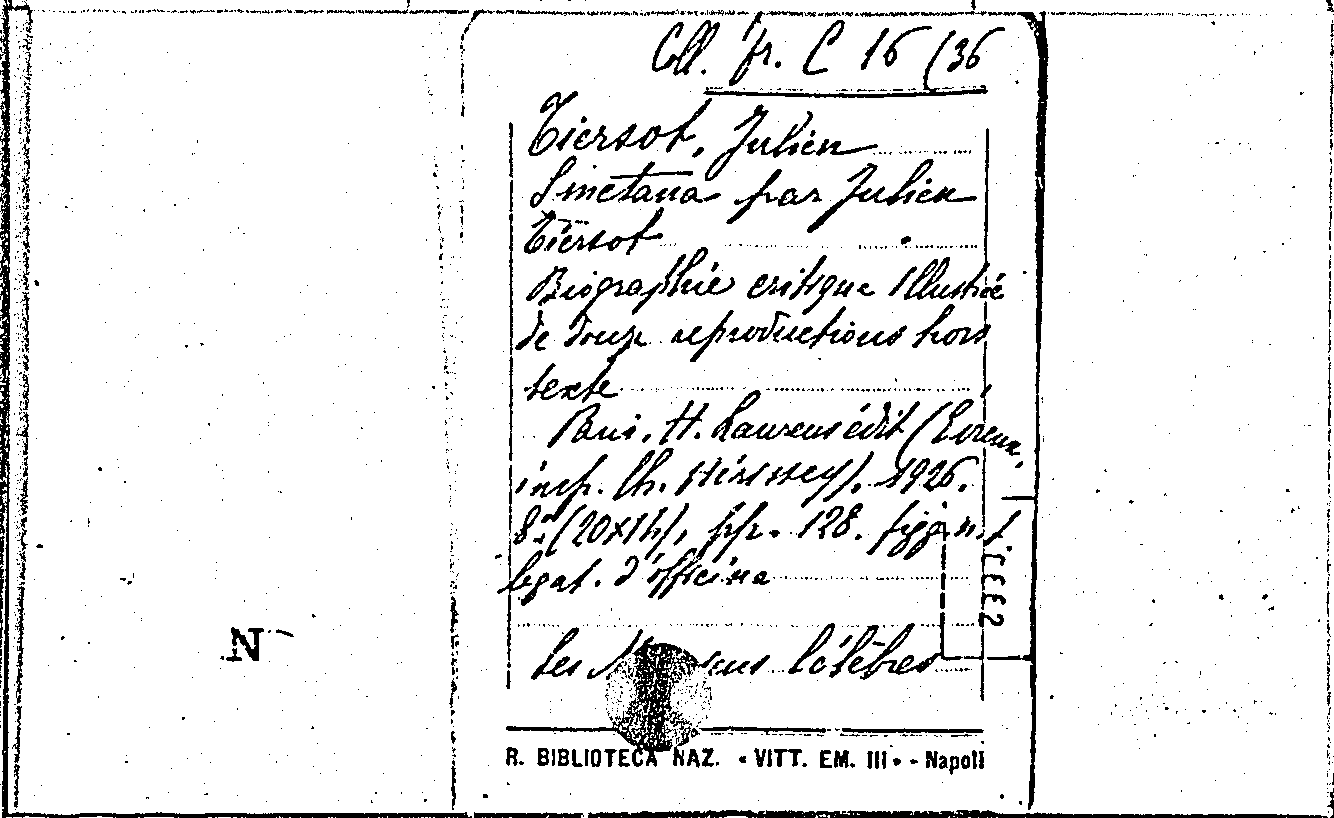 Coll. fr. C 16 (36
Tiersot, Julien
Smetana par Julien
Tiersot
Biographie critique illustrée
de douze reproductions hors
texte
Paris. H. Laurens édit (Évreux,
imp. Ch. Hérissey). 1926.
8.º (20x14), pp. 128. figg. n. t.
legat. d'officina
Les célèbres
N
R. BIBLIOTECA NAZ. « VITT. EM. III » - Napoli